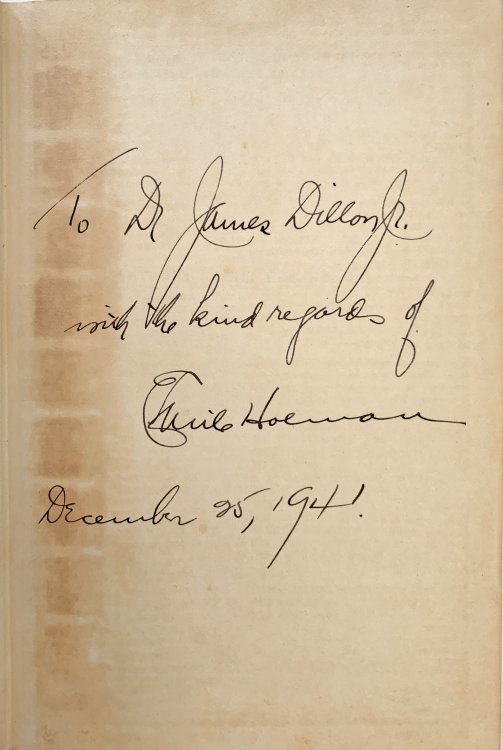 To Dr James Dillon Jr.
with the kind regards of
Emile Holman
December 25, 1941.